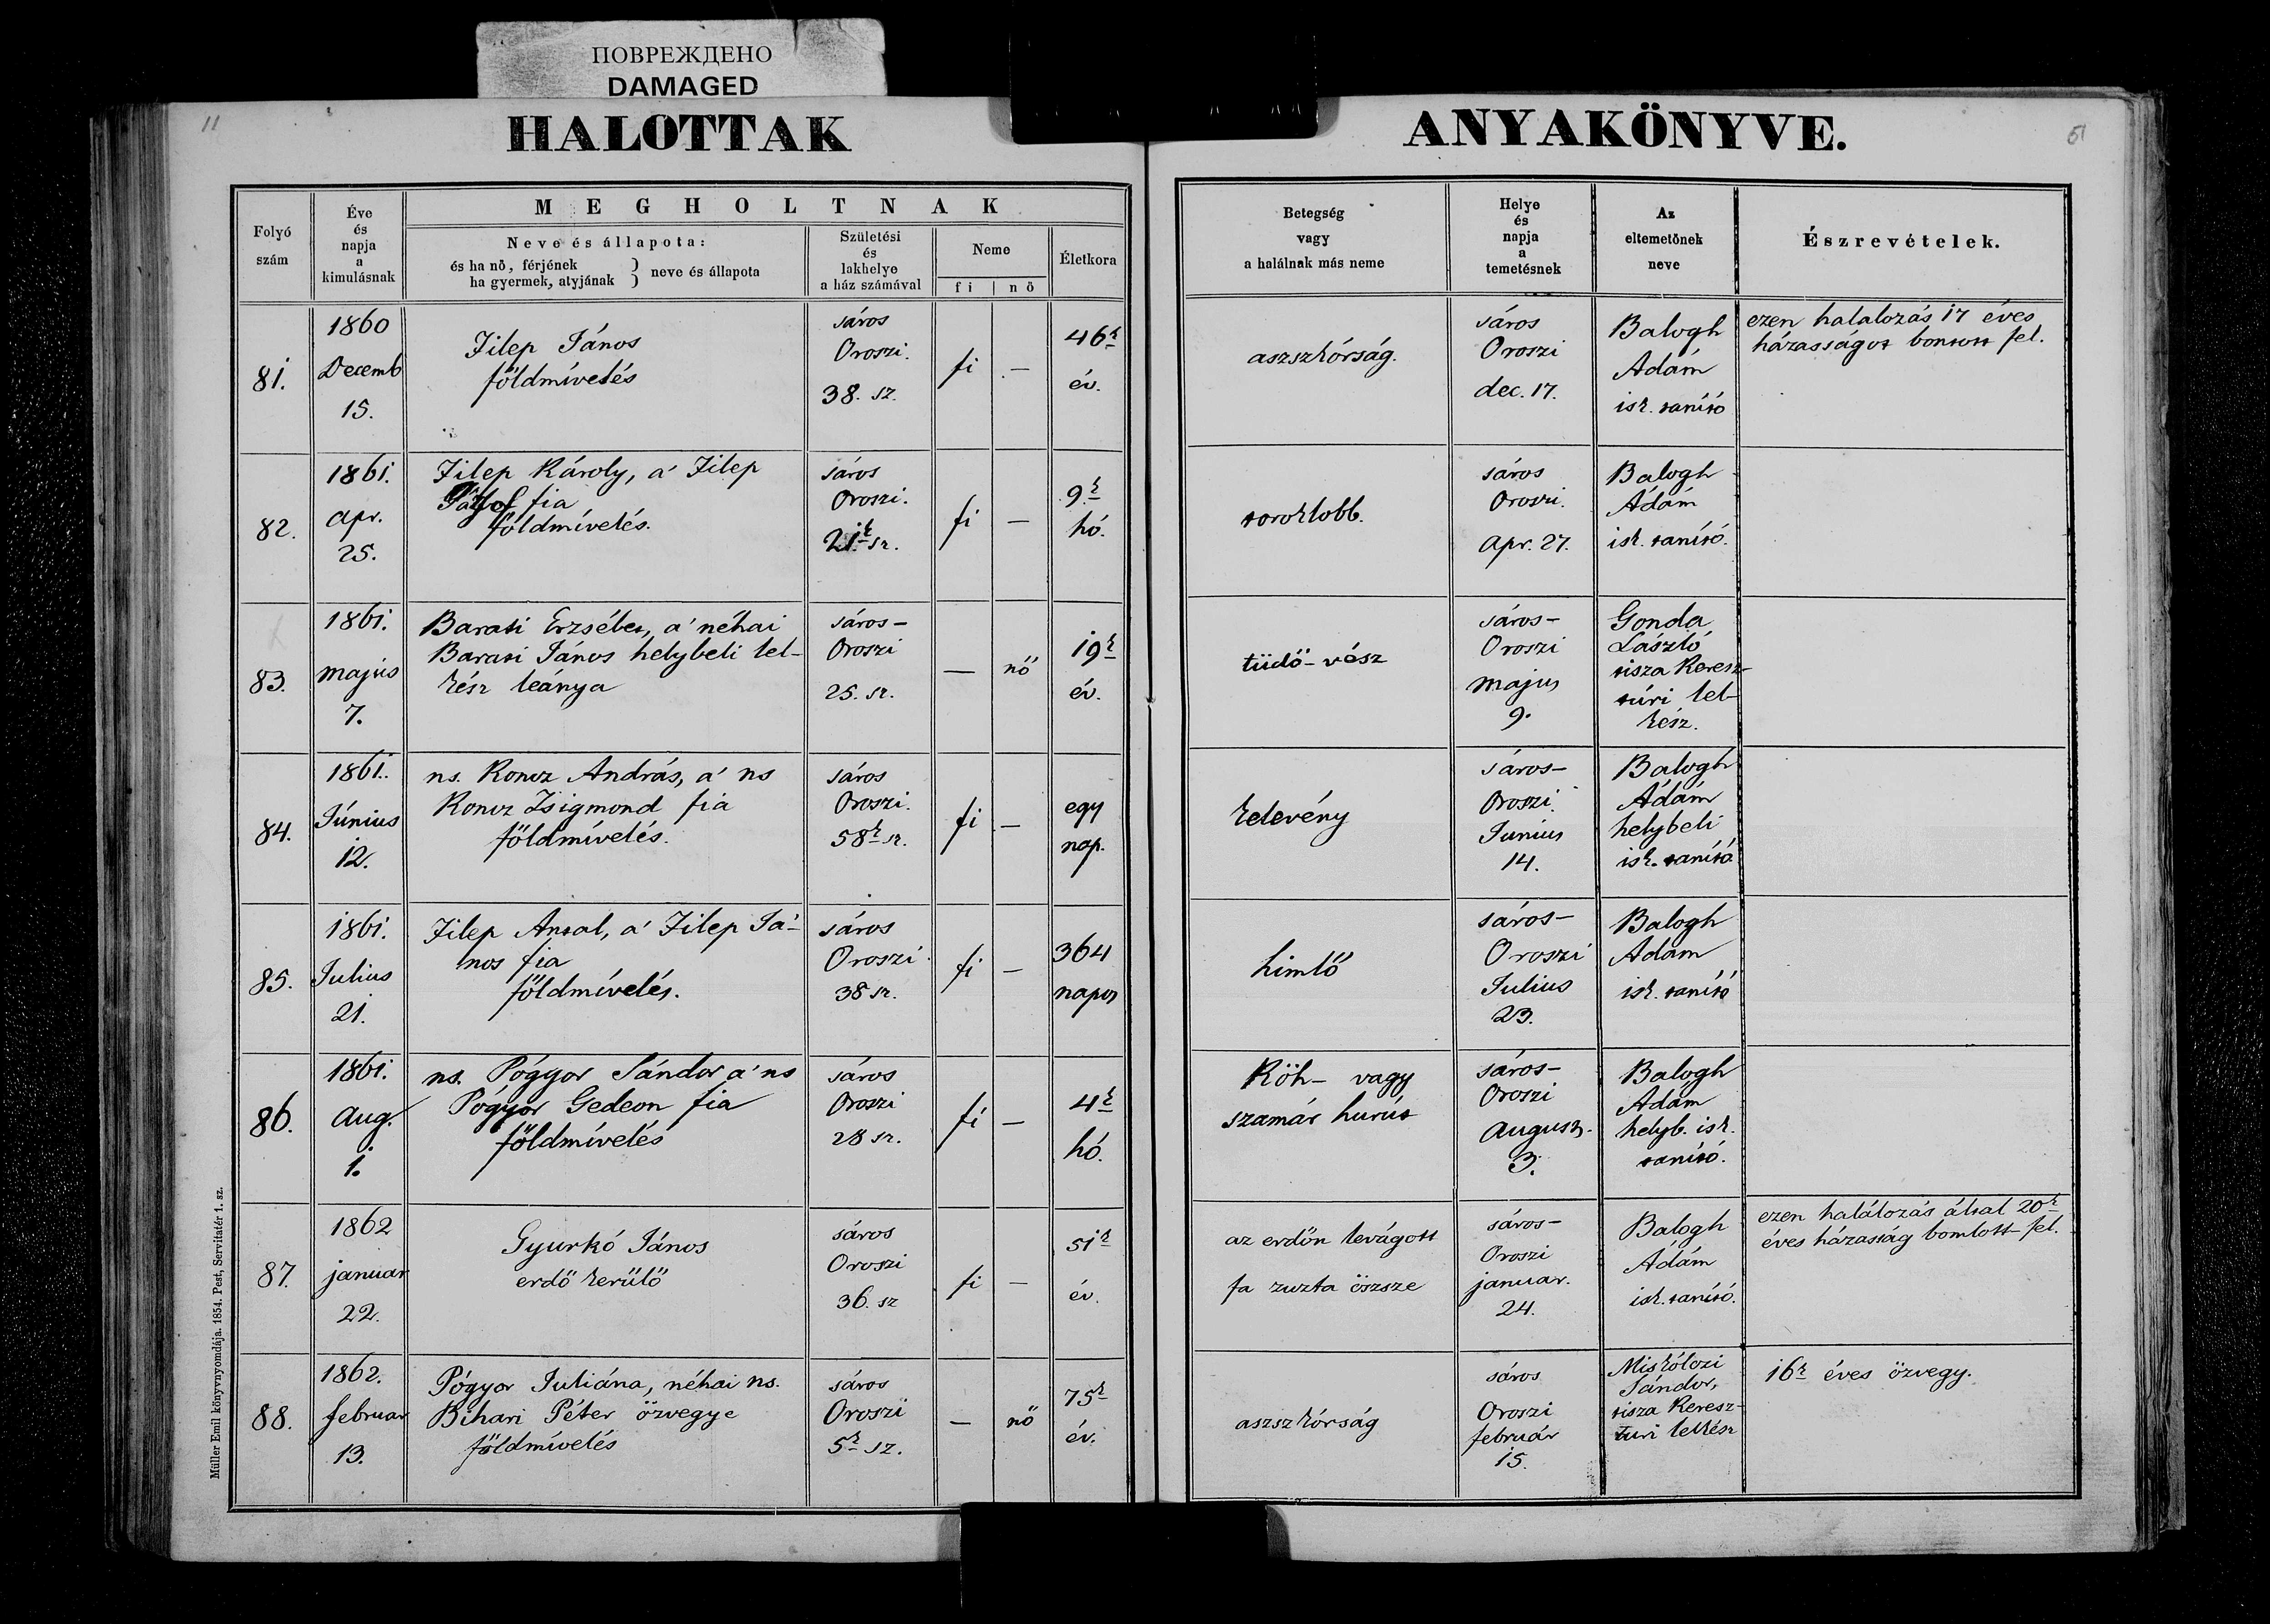 ПОВРЕЖДЕНО
DAMAGED
11
HALOTTAK
ANYAKÖNYVE.
51
Folyó
szám
Éve
és
napja
a
kimulásnak
MEGHOLTNAK
Neve és állapota:
és ha nő, férjének
ha gyermek, atyjának } neve és állapota
Születési
és
lakhelye
a ház számával
Neme
fi | nő
Életkora
Betegség
vagy
a halálnak más neme
Helye
és
napja
a
temetésnek
Az
eltemetőnek
neve
Észrevételek.
81.
1860
Decemb
15.
Filep János
földmívelés
sáros
Oroszi.
38. sz.
fi
—
46k
év.
aszszkórság.
sáros
Oroszi
dec. 17.
Balogh
Ádám
isk. tanító
ezen halalozás 17 éves
házasságot bontott fel.
82.
1861.
Apr.
25.
Filep Károly, a' Filep
fia
földmívelés.
sáros
Oroszi.
21k sz.
fi
—
9k
hó.
toroklobb.
sáros
Oroszi.
Apr. 27.
Balogh
Ádám
isk. tanító.
83.
1861.
majus
7.
Barati Erzsébet, a' néhai
Barati János helybeli lel-
kész leánya
sáros-
Oroszi
25. sz.
—
nő
19k
év.
tüdő-vész
sáros-
Oroszi
majus
9.
Gonda
László
tisza Keresz-
túri lel-
kész.
84.
1861.
Június
12.
ns. Koncz András, a' ns
Koncz Zsigmond fia
földmívelés.
sáros
Oroszi.
58k sz.
fi
—
egy
nap.
kelevény
sáros-
Oroszi.
Junius
14.
Balogh
Ádám
helybeli
isk. tanító
85.
1861.
Julius
21.
Filep Antal, a' Filep Já-
nos fia
földmívelés.
sáros
Oroszi.
38 sz.
fi
—
364
napos
himlő
sáros-
Oroszi
Julius
23.
Balogh
Adám
isk. tanító
86.
1861.
Aug.
1.
ns. Pógyor Sándor a' ns
Pógyor Gedeon fia
földmívelés
sáros
Oroszi
28 sz.
fi
—
4k
hó.
Köh- vagy
szamár hurut
sáros-
Oroszi
Auguszt.
3.
Balogh
Adám
helyb. isk.
tanító.
87.
1862
január
22.
Gyurkó János
erdő kerülő
sáros
Oroszi
36. sz
fi
—
51k
év.
az erdőn levágott
fa zuzta öszsze
sáros-
Oroszi
januar.
24.
Balogh
Ádám
isk. tanító.
ezen halálozás által 20k
éves házasság bomlott fel.
88.
1862.
február
13.
Pógyor Juliána, néhai ns.
Bihari Péter özvegye
földmívelés
sáros
Oroszi
5k sz.
—
nő
75k
év.
aszszkórság
sáros
Oroszi
február
15.
Miskólczi
Sándor,
tisza Keresz-
turi lelkész
16k éves özvegy.
Müller Emil könyvnyomdája. 1854. Pest, Servitatér 1. sz.